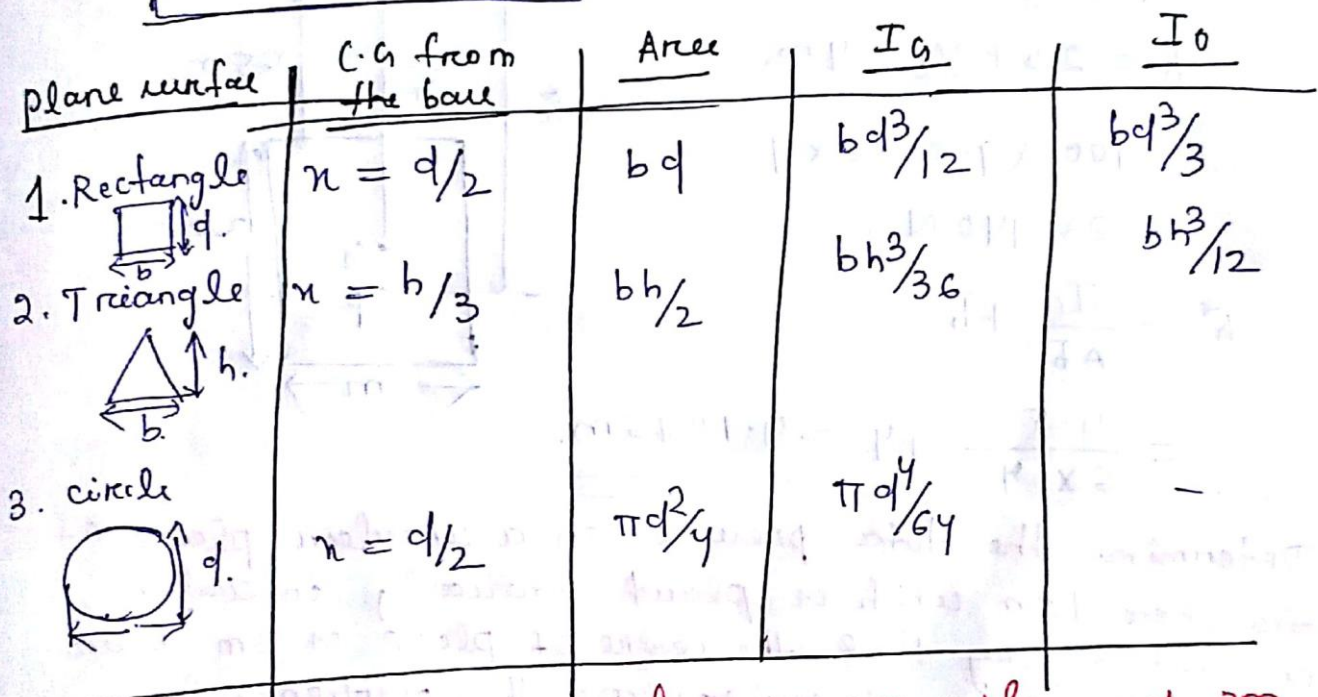 plane surface | C.G from the base | Area | I_G | I_0
1. Rectangle | x = d/2 | bd | bd³/12 | bd³/3
d.
b
2. Triangle | x = h/3 | bh/2 | bh³/36 | bh³/12
h.
b.
3. circle | x = d/2 | πd²/4 | πd⁴/64 | -
d.